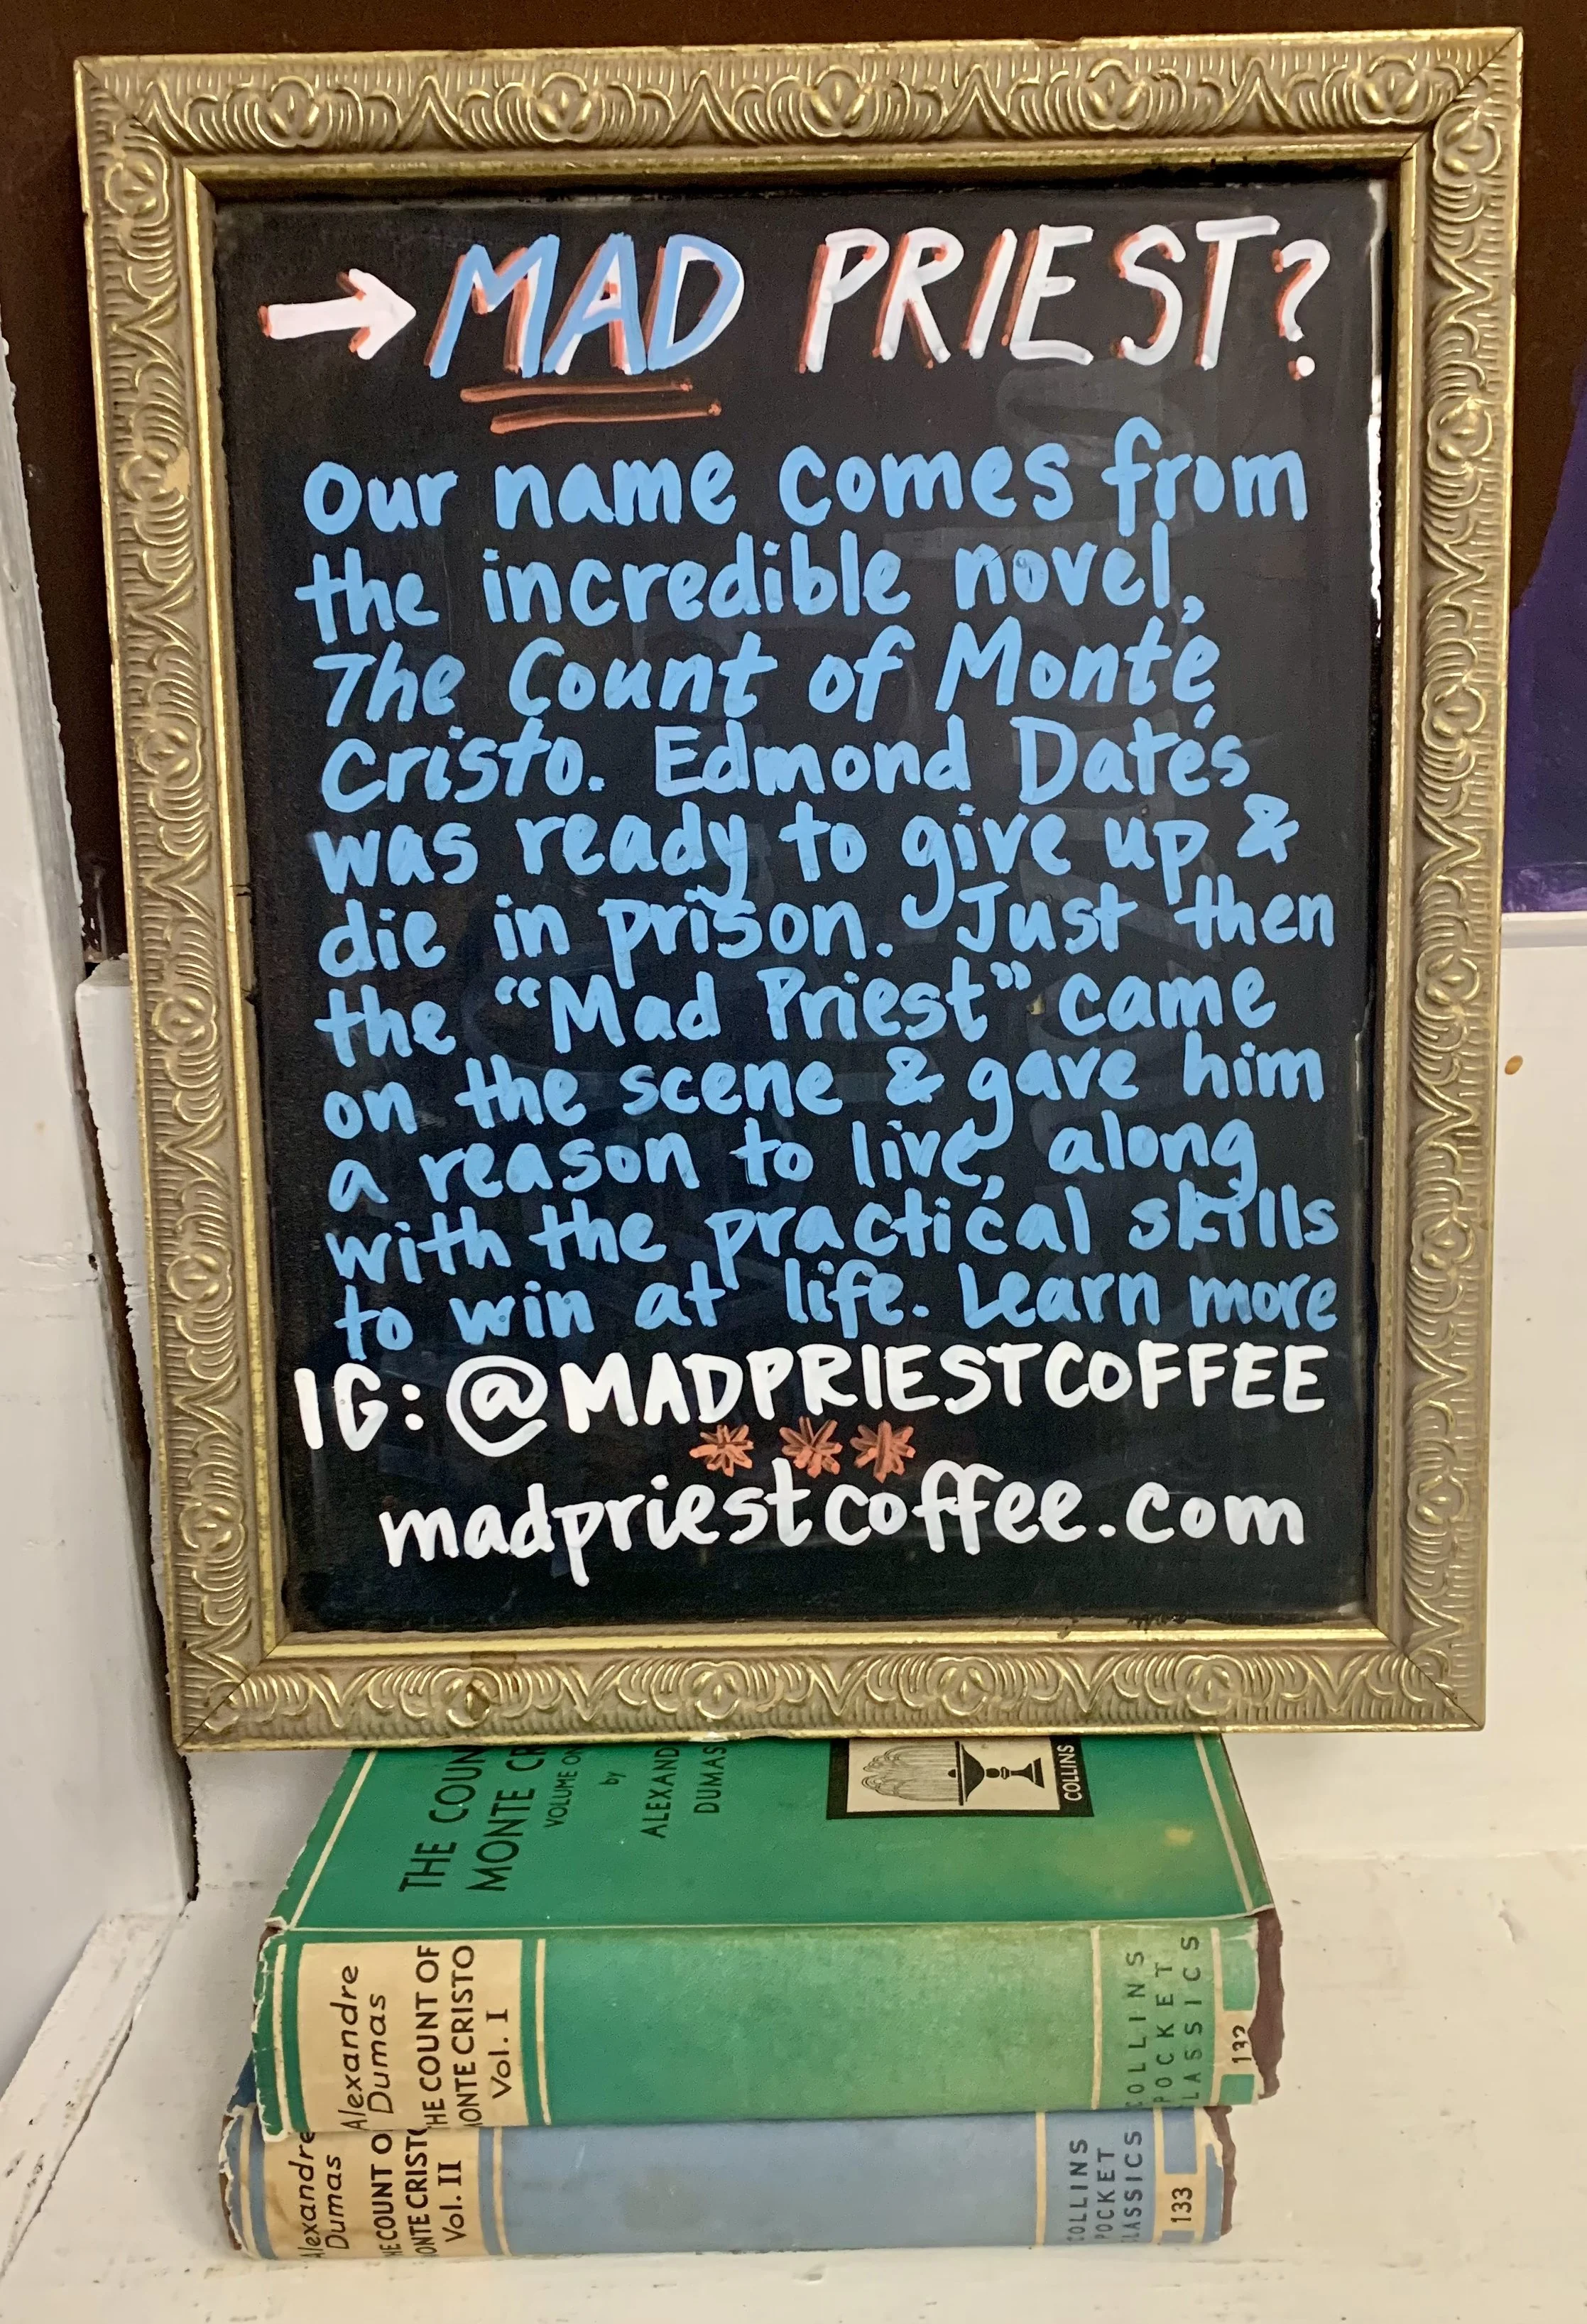 → MAD PRIEST?
Our name comes from
the incredible novel,
The Count of Monte
Cristo. Edmond Datés
was ready to give up &
die in prison. Just then
the “Mad Priest” came
on the scene & gave him
a reason to live, along
with the practical skills
to win at life. Learn more
IG: @MADPRIESTCOFFEE
madpriestcoffee.com
THE COUN
MONTE CR
VOLUME ON
by
ALEXAND
DUMAS
COLLINS
Alexandre
Dumas
HE COUNT OF
MONTE CRISTO
Vol. I
COLLINS
POCKET
LASSICS
132
Alexandre
Dumas
HE COUNT O
ONTE CRISTO
Vol. II
COLLINS
POCKET
LASSICS
133